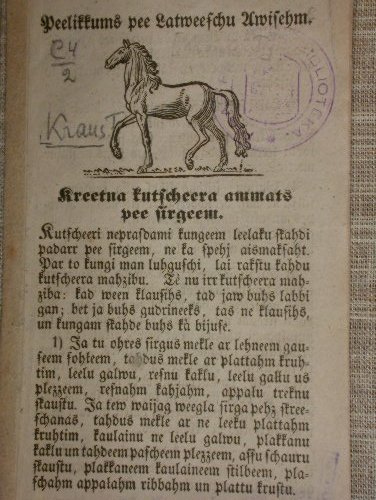 Peelikkums pee Latweeschu Awisehm.
C4
2
Kraus
BLIOTEKA
Kreetna kutscheera ammats
pee sirgeem.
Kutscheeri neprasdami kungeem leelaku skahdi
padarr pee sirgeem, ne ka spehj aismaksaht.
Par to kungi man luhguschi, lai rakstu kahdu
kutscheera mahzibu. Tè nu irr kutscheera mah-
ziba: kad ween klausihs, tad jaw buhs labbi
gan; bet ja buhs gudrineeks, tas ne klausihs,
un kungam skahde buhs kà bijuse.
1) Ja tu ohres sirgus mekle ar lehneem gau-
seem sohleem, tahdus mekle ar plattahm kruh-
tim, leelu galwu, resnu kaklu, leelu gallu us
plezzeem, resnahm kahjahm, appalu treknu
skaustu. Ja tew waijag weegla sirga pehz skree-
schanas, tahdus mekle ar ne leeku plattahm
kruhtim, kaulainu ne leelu galwu, plakkanu
kaklu un tahdeem pascheem plezzeem, assu schauru
skaustu, plakkaneem kaulaineem stilbeem, pla-
schahm appalahm ribbahm un plattu krustu.